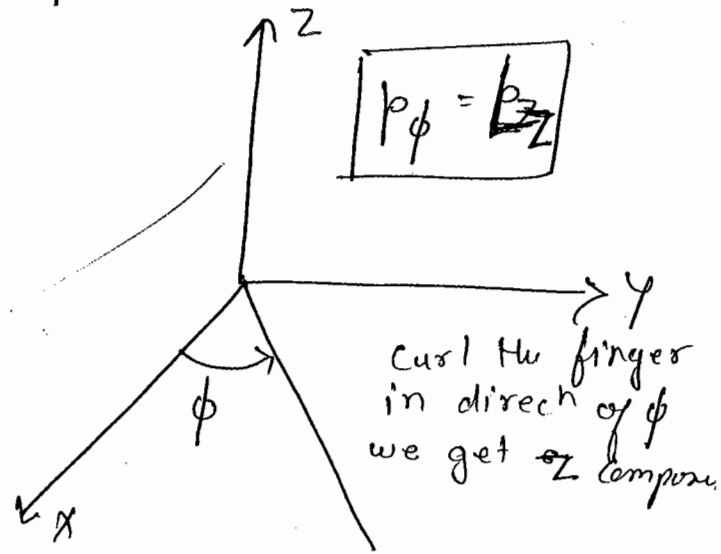 Z
pϕ = L_Z
Y
Curl the finger
in direcⁿ of ϕ
we get Z
ϕ
X